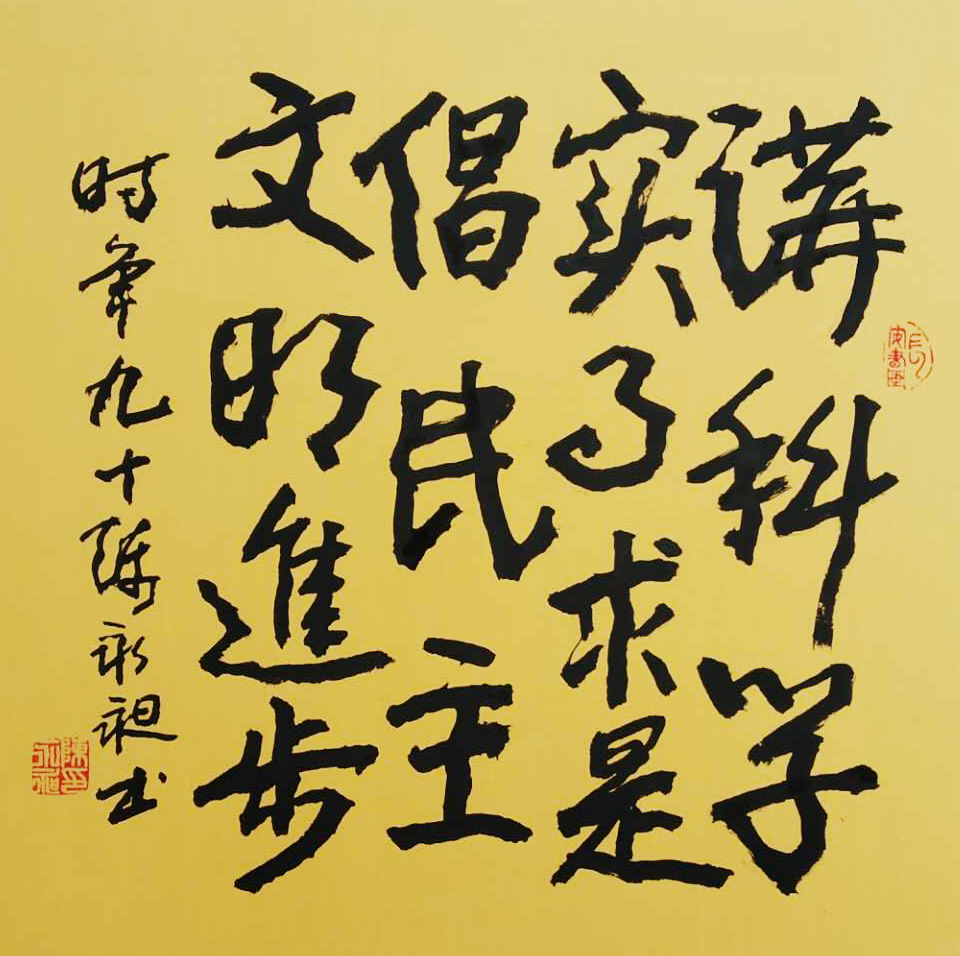 講科学
实事求是
倡民主
文明進步
时年九十陈永昶书